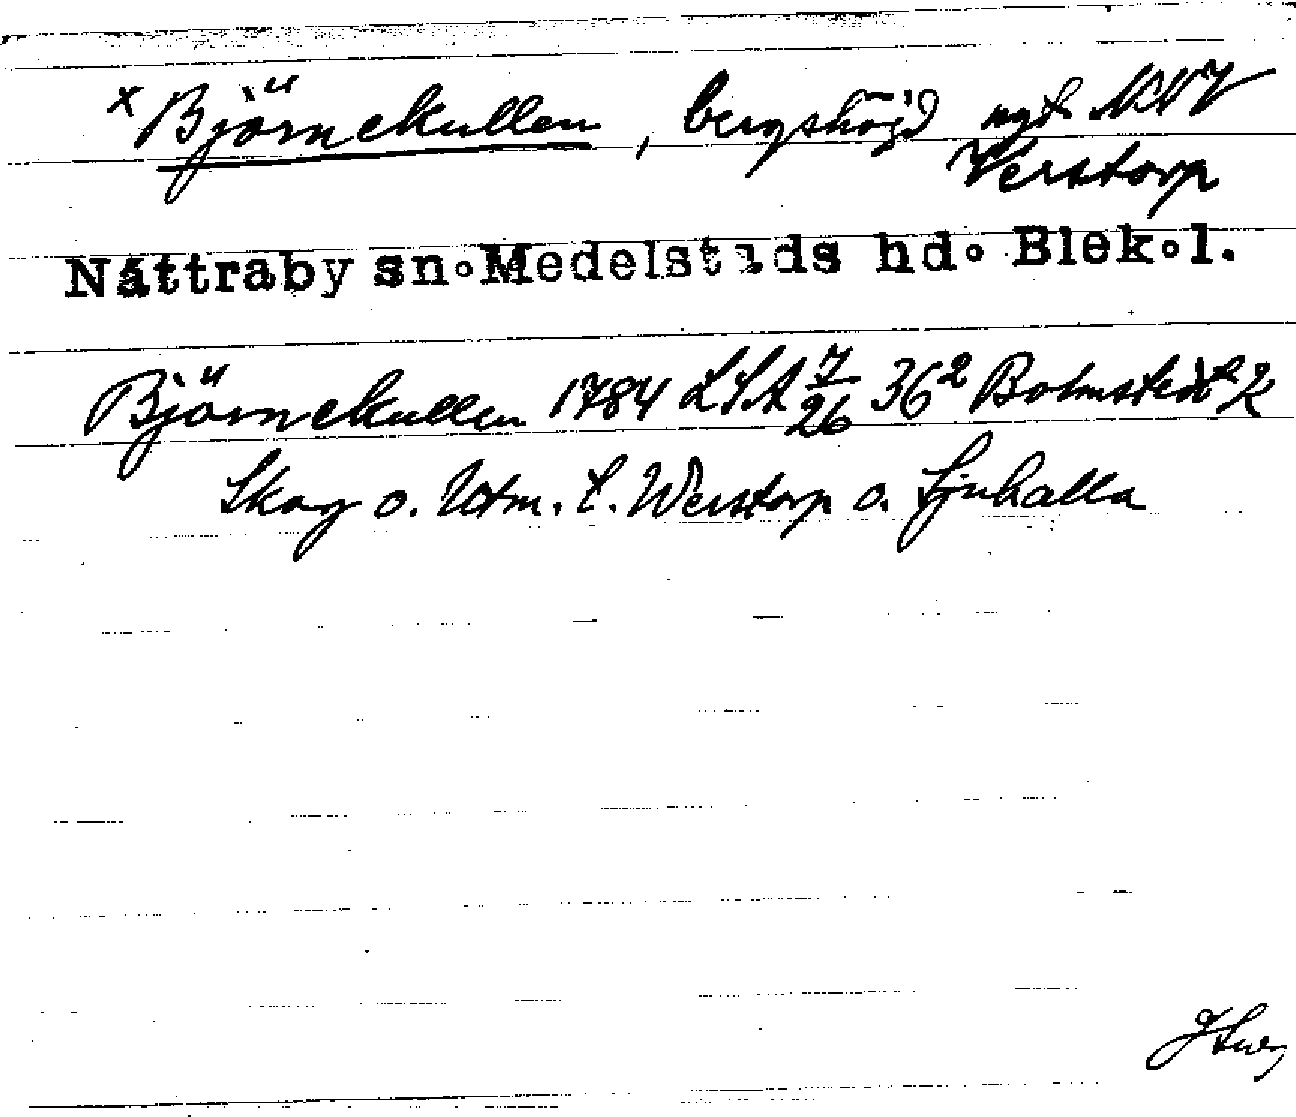 x Björnekullen, bergshöjd ngt NNV
Verstorp
Nättraby sn. Medelstads hd. Blek. l.
Björnekullen 1784 LSA 7/26 36² Bohmstedt
Skog o. Utm. t. Werstorp o. Ljuhalla